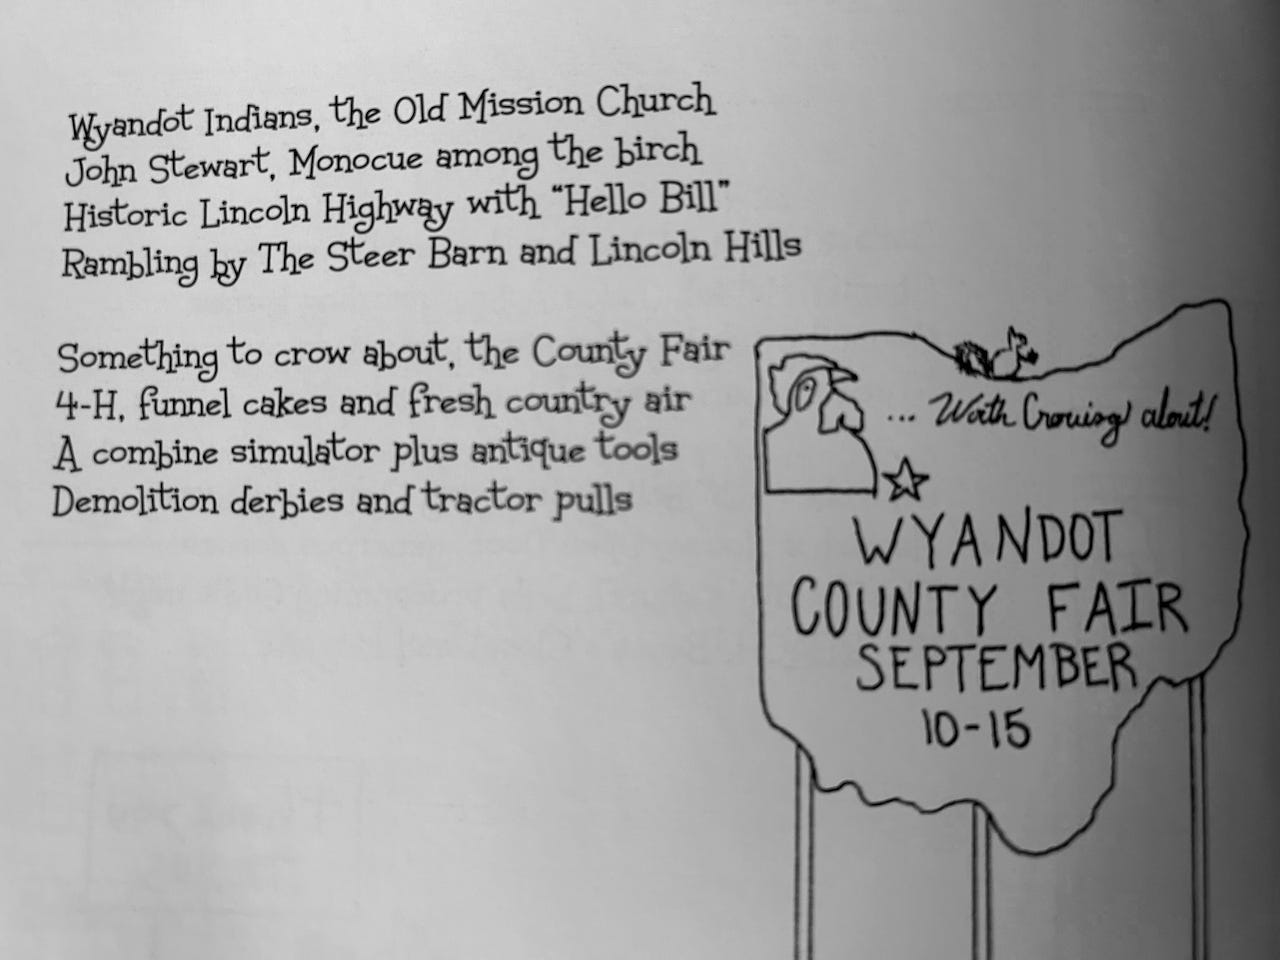 Wyandot Indians, the Old Mission Church
John Stewart, Monocue among the birch
Historic Lincoln Highway with “Hello Bill”
Rambling by The Steer Barn and Lincoln Hills
Something to crow about, the County Fair
4-H, funnel cakes and fresh country air
A combine simulator plus antique tools
Demolition derbies and tractor pulls
... Worth Crowing about!
WYANDOT
COUNTY FAIR
SEPTEMBER
10-15